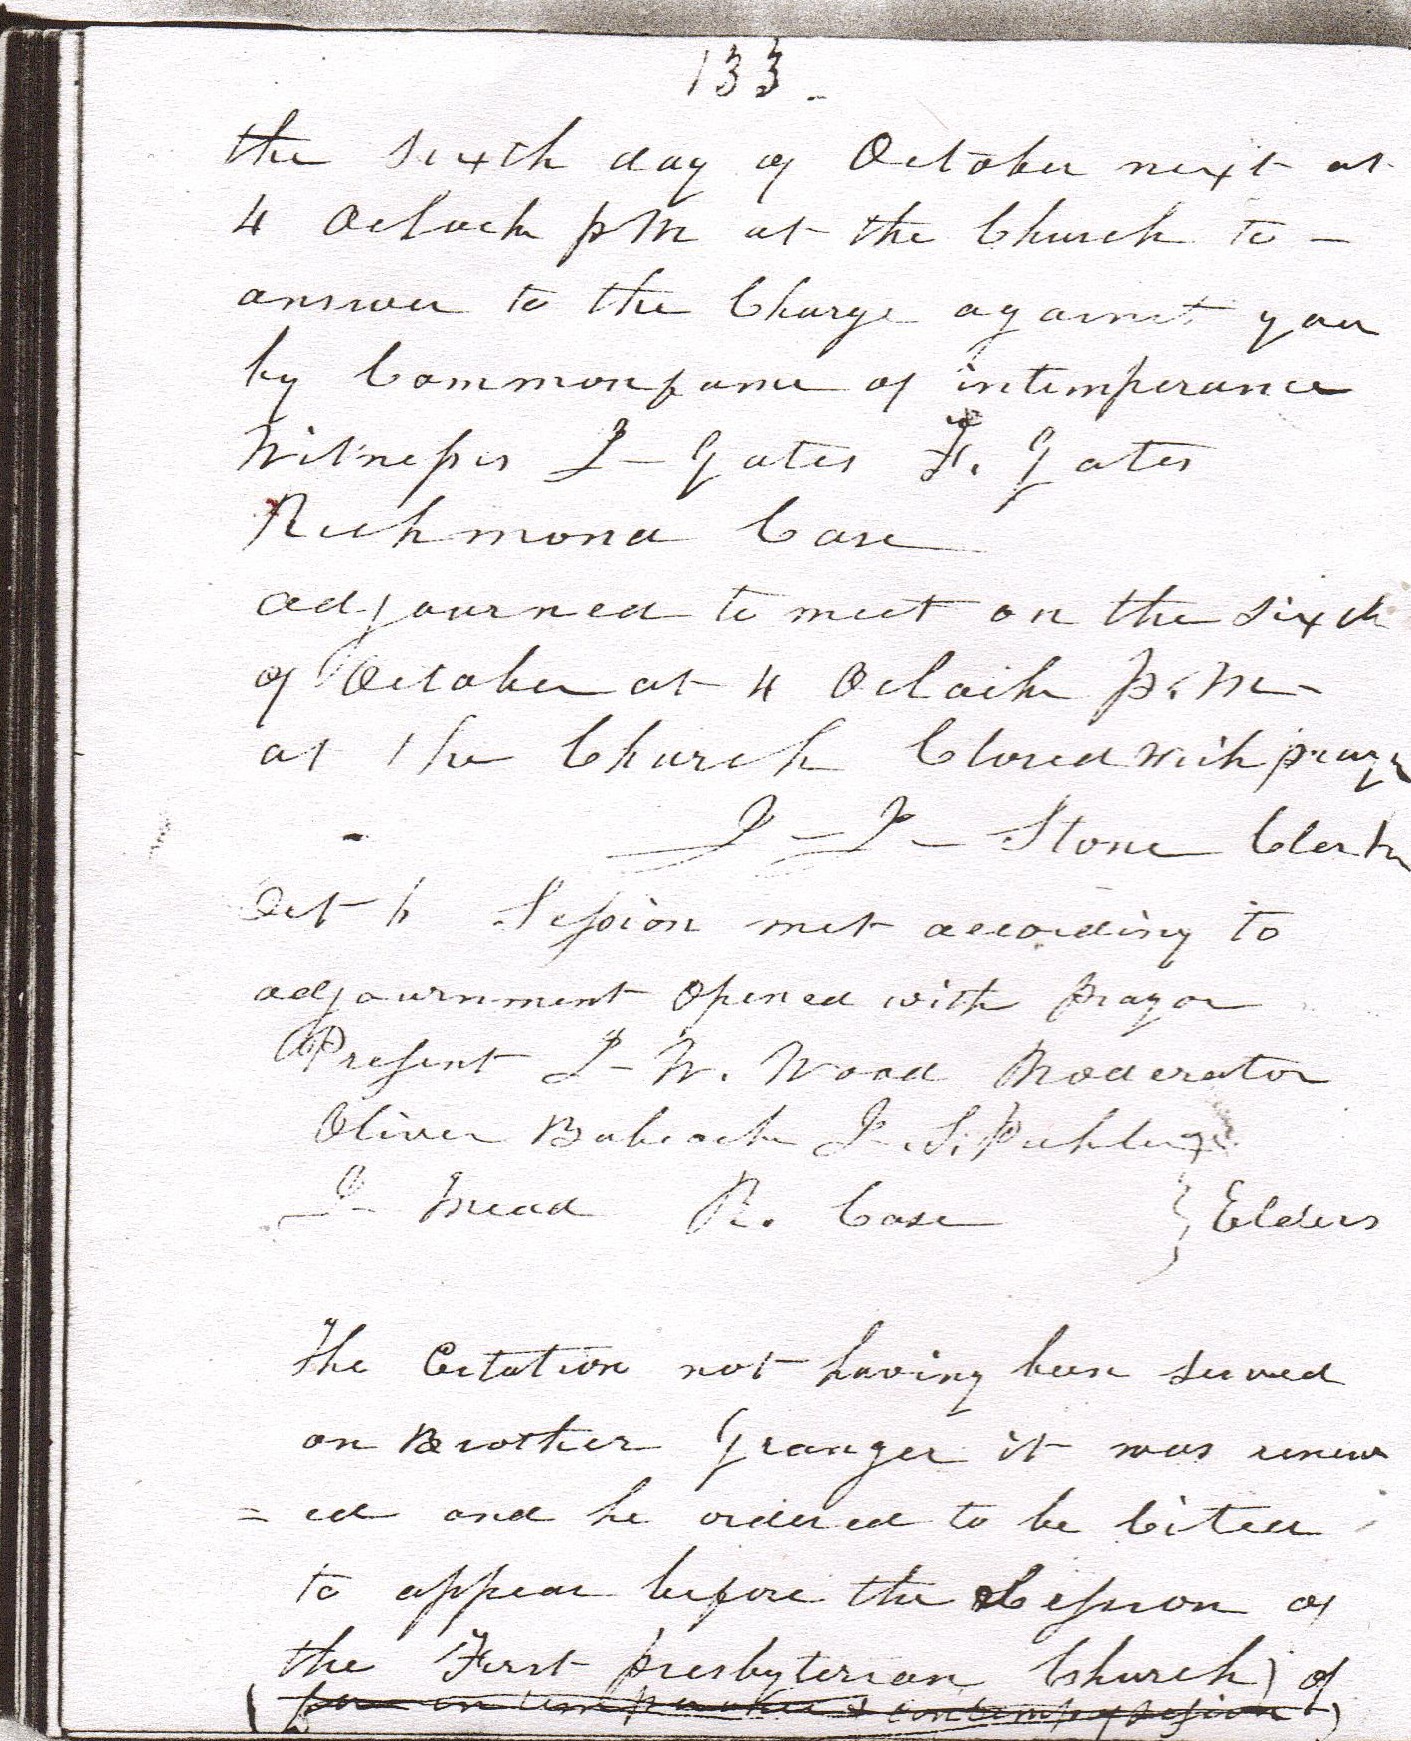 133.
the sixth day of October next at
4 Oclock pM at the Church to -
answer to the Charge against you
by Commonfame of intemperance
Witnesses I - Gates F. Gates
Richmond Case
adjourned to meet on the sixth
of October at 4 Oclock P.M -
at the Church Closed with prayer
Stone Clerk
Oct 6 Session met according to
adjournment Opened with prayer
Present I - W. Wood Moderator
Oliver Babcock J. S. Puhler
I - Mead R. Case } Elders
The Citation not having been served
on Brother Granger it was renew
= ed and he ordered to be Cited
to appear before the Session of
the First Presbyterian Church) of
(for intemperance & contemp of Session)